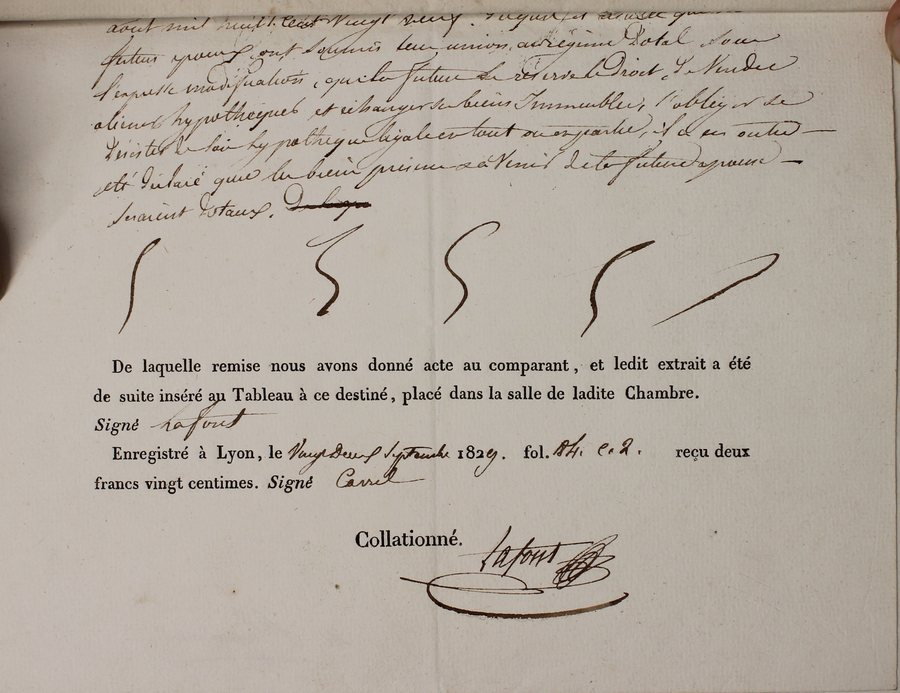 août mil huit cent vingt neuf. duquel il résulte que les
futurs epoux ont soumis leur union au régime Dotal, sous
l'expresse modification, que la future se réserve le Droit, De Vendre
aliener hypothequer et échanger ses biens Immeubles, l'obliger se
Désister de son hypothèque légale en tout ou en partie, il a en outre
été Déclaré que les biens présens & à Venir de la future epouse
seraient Dotaux.
De laquelle remise nous avons donné acte au comparant, et ledit extrait a été
de suite inséré au Tableau à ce destiné, placé dans la salle de ladite Chambre.
Signé Lafont
Enregistré à Lyon, le Vingt Deux Septembre 1829. fol. 84. c. 2. reçu deux
francs vingt centimes. Signé Carrel
Collationné. Lafont